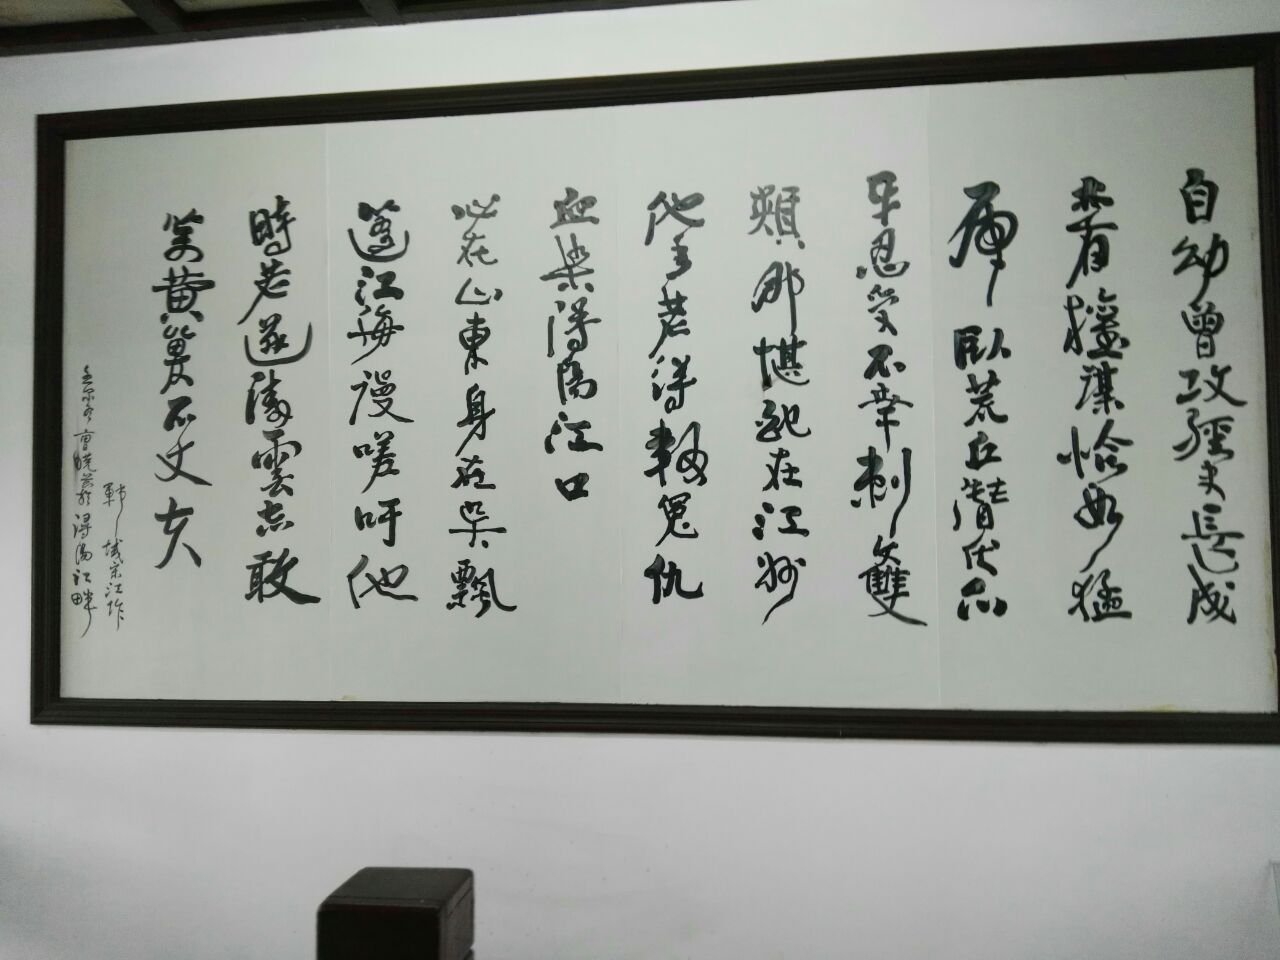 自幼曾攻經史長成
亦有權謀恰如猛
虎卧荒丘潛伏爪
牙忍受不幸刺雙
頰那堪配在江州
他年若得報冤仇
血染潯陽江口
心在山東身在吳飄
蓬江海謾嗟吁他
時若遂凌雲志敢
笑黃巢不丈夫
鄆城宋江作
潯陽江畔